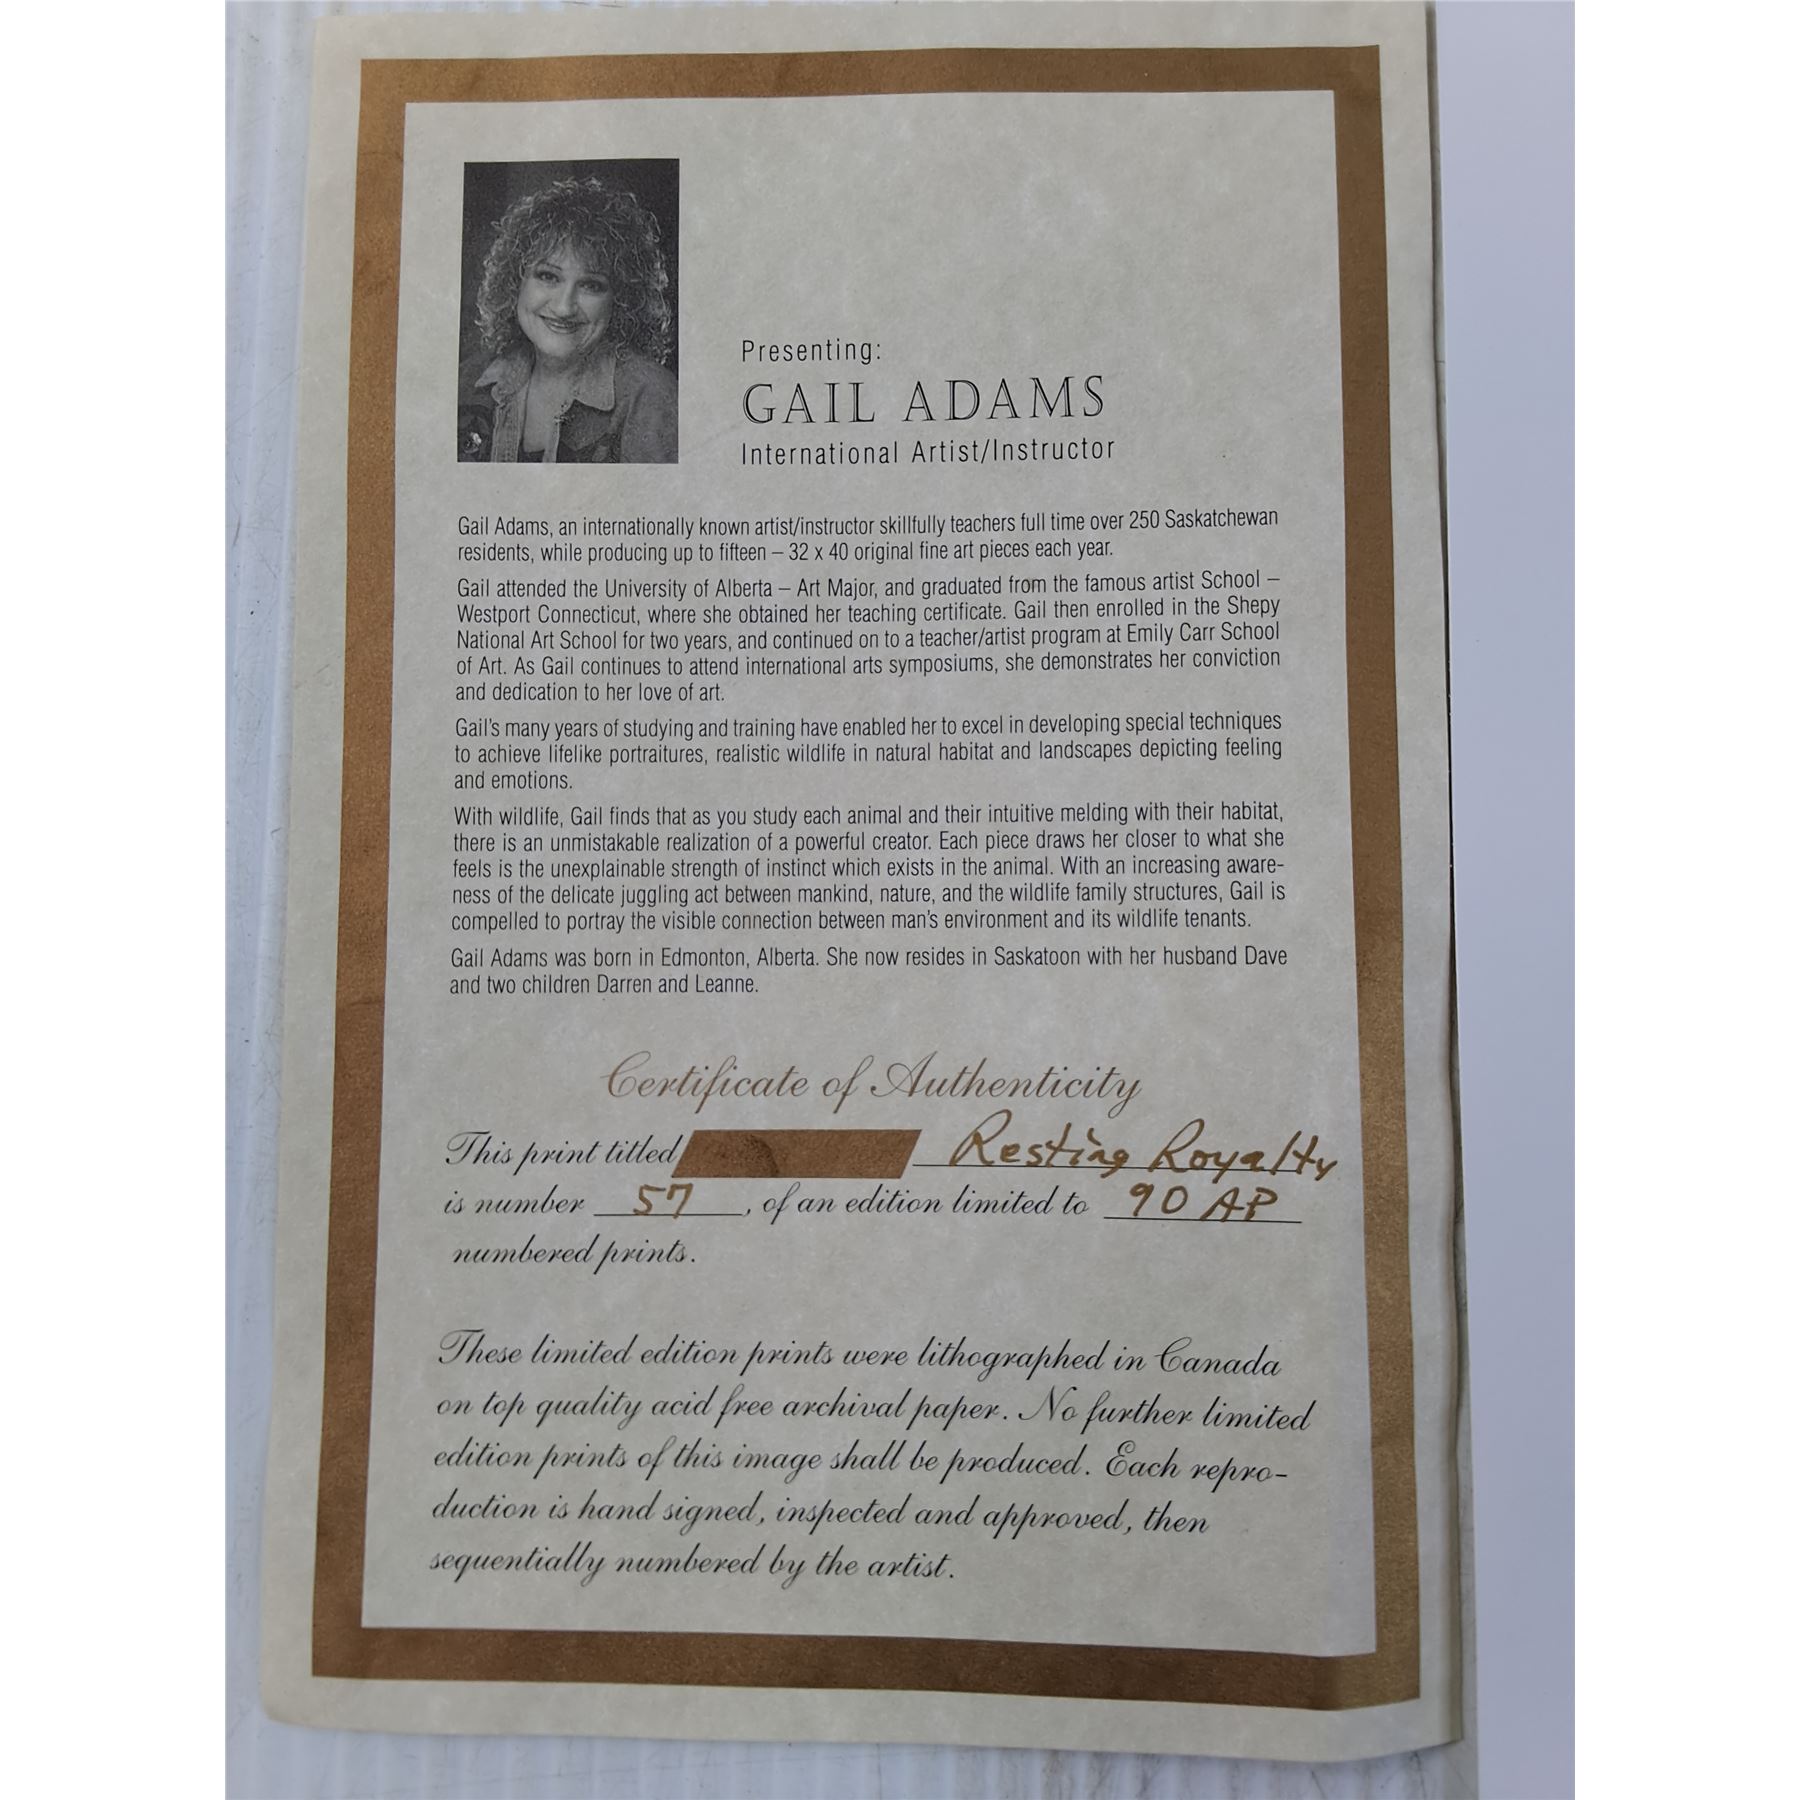 Presenting:
GAIL ADAMS
International Artist/Instructor
Gail Adams, an internationally known artist/instructor skillfully teachers full time over 250 Saskatchewan
residents, while producing up to fifteen – 32 x 40 original fine art pieces each year.
Gail attended the University of Alberta – Art Major, and graduated from the famous artist School –
Westport Connecticut, where she obtained her teaching certificate. Gail then enrolled in the Shepy
National Art School for two years, and continued on to a teacher/artist program at Emily Carr School
of Art. As Gail continues to attend international arts symposiums, she demonstrates her conviction
and dedication to her love of art.
Gail's many years of studying and training have enabled her to excel in developing special techniques
to achieve lifelike portraitures, realistic wildlife in natural habitat and landscapes depicting feeling
and emotions.
With wildlife, Gail finds that as you study each animal and their intuitive melding with their habitat,
there is an unmistakable realization of a powerful creator. Each piece draws her closer to what she
feels is the unexplainable strength of instinct which exists in the animal. With an increasing aware-
ness of the delicate juggling act between mankind, nature, and the wildlife family structures, Gail is
compelled to portray the visible connection between man's environment and its wildlife tenants.
Gail Adams was born in Edmonton, Alberta. She now resides in Saskatoon with her husband Dave
and two children Darren and Leanne.
Certificate of Authenticity
This print titled Resting Royalty
is number 57, of an edition limited to 90 AP
numbered prints.
These limited edition prints were lithographed in Canada
on top quality acid free archival paper. No further limited
edition prints of this image shall be produced. Each repro-
duction is hand signed, inspected and approved, then
sequentially numbered by the artist.